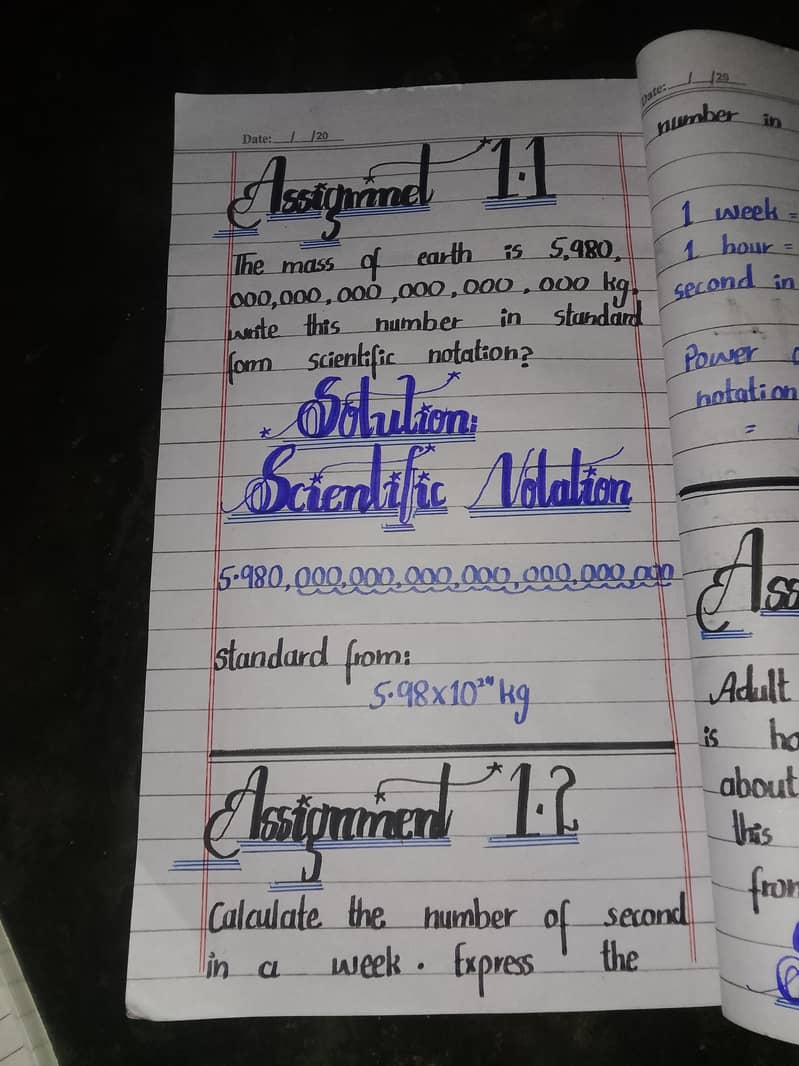 Date: / /20
Assignmet 1.1
The mass of earth is 5,980,
000,000,000,000,000,000 kg.
write this number in standard
form scientific notation?
Solution:
Scientific Notation
5.980,000,000,000,000,000,000,000
standard from:
5.98x10²⁴ kg
Assignment 1.2
Calculate the number of second
in a week. Express the
Date: / /20
number in
1 week =
1 hour =
second in
Power
notation
=
Ass
Adult
is ho
about
this
from